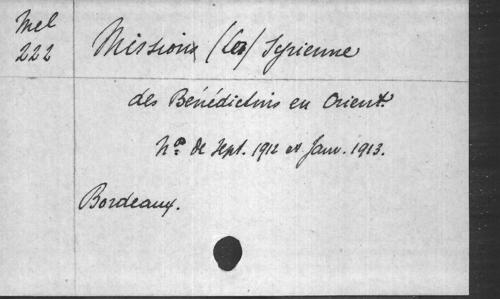 Mel
222
Mission (la) Syrienne
des Bénédictins en Orient.
Nos de Sept. 1912 et Janv. 1913.
Bordeaux.